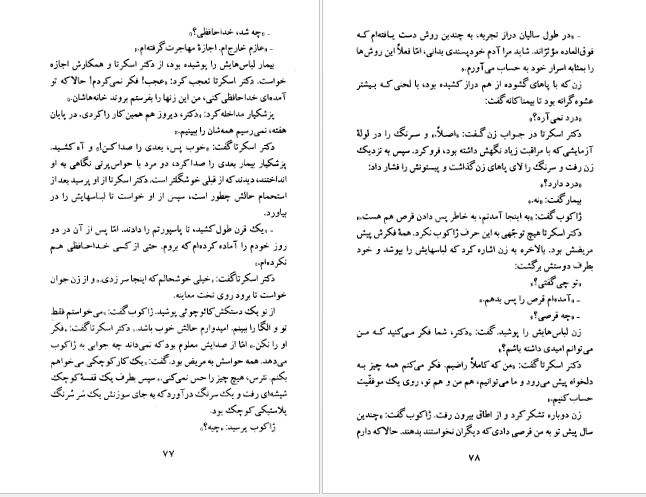 ـ «چه شد، خداحافظی؟»
ـ «عازم خارج‌ام. اجازهٔ مهاجرت گرفته‌ام.»
بیمار لباس‌هایش را پوشیده بود، از دکتر اسکرتا و همکارش اجازه
خواست. دکتر اسکرتا تعجب کرد: «عجب! فکر نمی‌کردم! حالا که تو
آمده‌ای خداحافظی کنی، من این زنها را بفرستم بروند خانه‌هاشان.»
پزشکیار مداخله کرد: «دکتر، دیروز هم همین کار را کردی. در پایان
هفته، نمی‌رسیم همه‌شان را ببینیم.»
دکتر اسکرتا گفت: «خوب پس، بعدی را صدا کن!» و آه کشید.
پزشکیار بیمار بعدی را صدا کرد، دو مرد با حواس‌پرتی نگاهی به او
انداختند، دیدند که از قبلی خوشگلتر است. دکتر اسکرتا از او پرسید بعد از
استحمام حالش چطور است، سپس از او خواست تا لباسهایش را در
بیاورد.
ـ «یک قرن طول کشید، تا پاسپورتم را دادند. امّا پس از آن در دو
روز خودم را آماده کرده‌ام که بروم. حتی از کسی خداحافظی هم
نکرده‌ام.»
دکتر اسکرتا گفت: «خیلی خوشحالم که اینجا سر زدی.» و از زن جوان
خواست تا برود روی تخت معاینه.
از نو یک دستکش کائوچوئی پوشید. ژاکوب گفت: «می‌خواستم فقط
تو و الگا را ببینم. امیدوارم حالش خوب باشد.» دکتر اسکرتا گفت: «فکر
او را نکن.» امّا از صدایش معلوم بود که نمی‌داند چه جوابی به ژاکوب
می‌دهد. همه حواسش به مریض بود. گفت: «یک کار کوچکی می‌خواهم
بکنم. نترس، هیچ چیز را حس نمی‌کنی.» سپس بطرف یک قفسهٔ کوچک
شیشه‌ای رفت و یک سرنگ درآورد که به جای سوزنش یک سَر سُرنگ
پلاستیکی کوچک بود.
ژاکوب پرسید: «چیه؟»
۷۷
ـ «در طول سالیان دراز تجربه، به چندین روش دست یافته‌ام که
فوق‌العاده مؤثرند. شاید مرا آدم خودپسندی بدانی، امّا فعلاً این روش‌ها
را بمثابه اسرار خود به حساب می‌آورم.»
زن که با پاهای گشوده از هم دراز کشیده بود، با لحنی که بیشتر
عشوه‌گرانه بود تا بیمناکانه گفت:
«درد نمی‌آره؟»
دکتر اسکرتا در جواب زن گفت: «اصلاً.» و سرنگ را در لولهٔ
آزمایشی که با مراقبت زیاد نگهش داشته بود، فرو کرد. سپس به نزدیک
زن رفت و سرنگ را لای پاهای زن گذاشت و پیستونش را فشار داد:
«درد داره؟»
بیمار گفت: «نه.»
ژاکوب گفت: «به اینجا آمدنم، به خاطر پس دادن قرص هم هست.»
دکتر اسکرتا هیچ توجّهی به این حرف ژاکوب نکرد. همهٔ فکرش پیش
مریضش بود. بالاخره به زن اشاره کرد که لباسهایش را بپوشد و خود
بطرف دوستش برگشت:
«تو چی گفتی؟»
ـ «آمده‌ام قرص را پس بدهم.»
ـ «چه قرصی؟»
زن لباس‌هایش را پوشید. گفت: «دکتر، شما فکر می‌کنید که من
می‌توانم امیدی داشته باشم؟»
دکتر اسکرتا گفت: «من که کاملاً راضیم. فکر می‌کنم همه چیز به
دلخواه پیش می‌رود و ما می‌توانیم، هم من و هم تو، روی یک موفقیّت
حساب کنیم.»
زن دوباره تشکر کرد و از اطاق بیرون رفت. ژاکوب گفت: «چندین
سال پیش تو به من قرصی دادی که دیگران نخواستند بدهند. حالا که دارم
۷۸